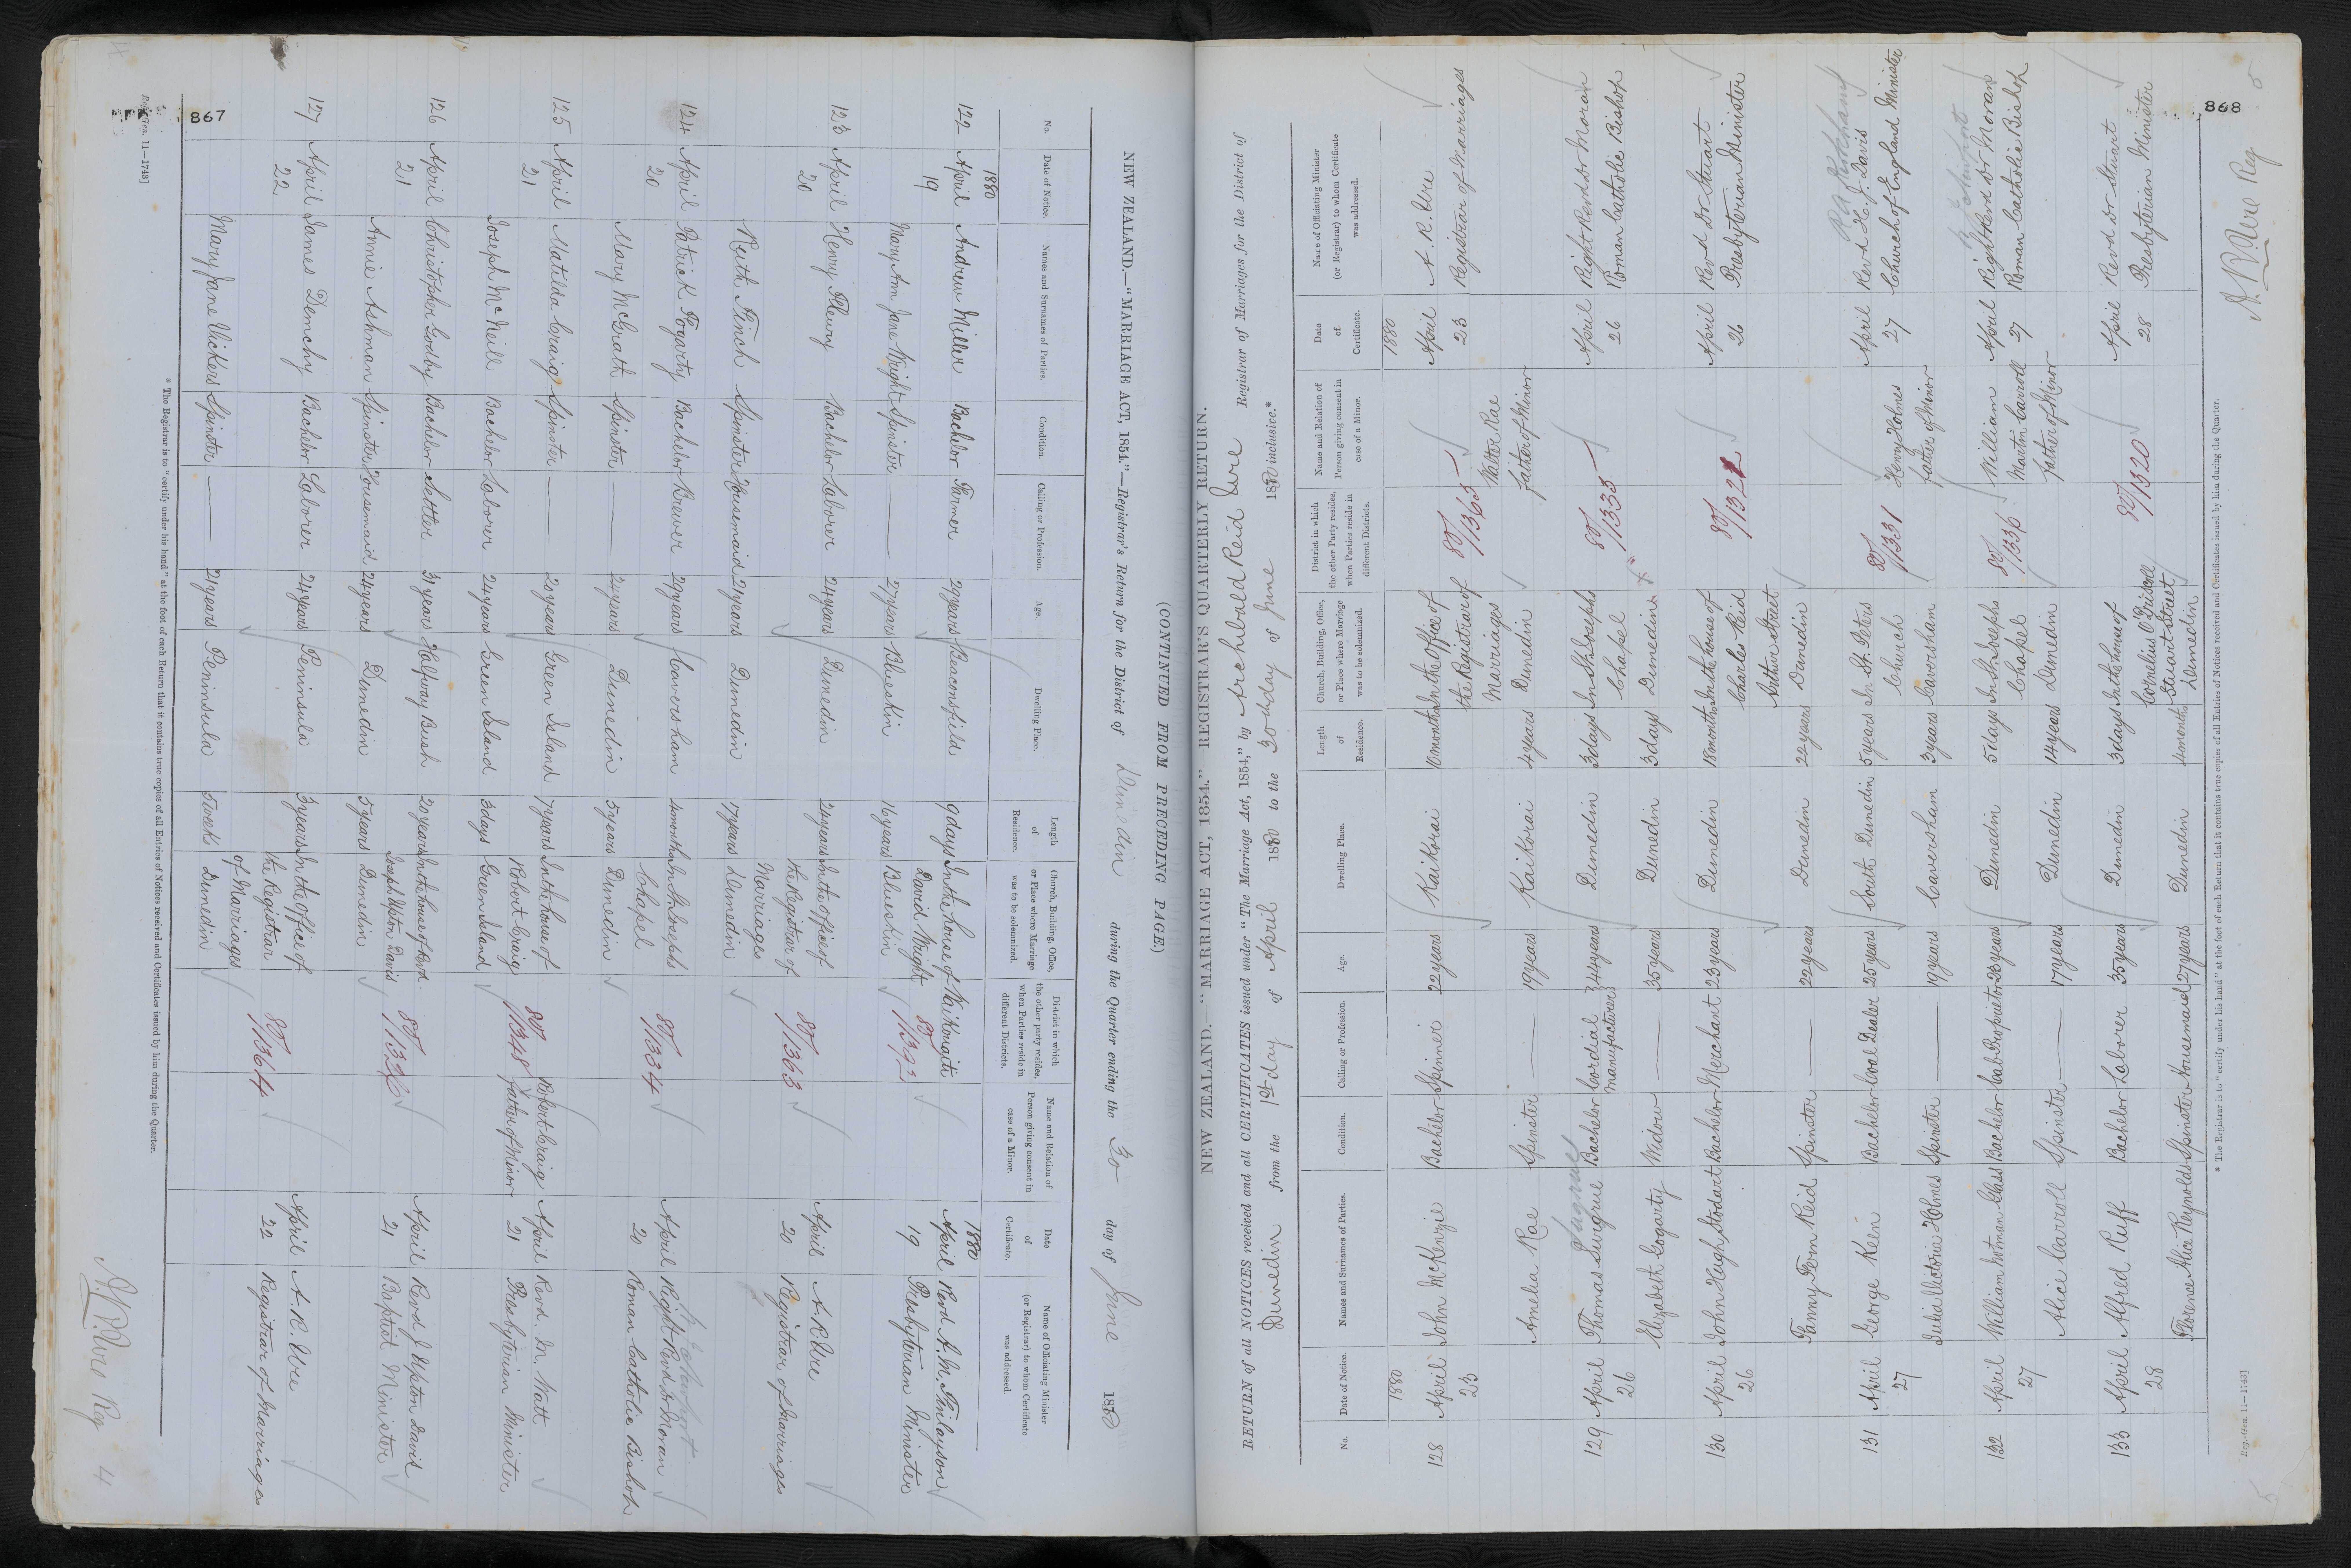 867
(CONTINUED FROM PRECEDING PAGE)
NEW ZEALAND.—"MARRIAGE ACT, 1854."—Registrar's Return for the District of Dunedin during the Quarter ending the 30 day of June 1880
No. Date of Notice. Names and Surnames of Parties. Condition. Calling or Profession. Age. Dwelling Place. Length of Residence. Church, Building, Office, or Place where Marriage was to be solemnized. District in which the other party resides, when Parties reside in different Districts. Name and Relation of Person giving consent in case of a Minor. Date of Certificate. Name of Officiating Minister (or Registrar) to whom Certificate was addressed.
1880 1880
122 April Andrew Miller Bachelor Farmer 29 years Beaconsfield 9 days In the house of Waikouaiti April Revd A. M. Finlayson
19 David Wright 80/1392 19 Presbyterian Minister
Mary Ann Jane Wright Spinster — 27 years Blueskin 16 years Blueskin
123 April Henry Fleury Bachelor Laborer 24 years Dunedin 24 years In the office of April A. R. Ure
20 the Registrar of 80/1363 20 Registrar of Marriages
Marriages
Ruth Finch Spinster Housemaid 21 years Dunedin 17 years Dunedin
124 April Patrick Fogarty Bachelor Brewer 29 years Caversham 4 months In St. Josephs April Right Revd Dr Moran
20 Chapel 80/1334 20 Roman Catholic Bishop
Mary McGrath Spinster — 24 years Dunedin 5 years Dunedin
125 April Matilda Craig Spinster — 20 years Green Island 7 years In the house of 80/1348 Robert Craig April Revd. M. Watt
21 Robert Craig Father of Minor 21 Presbyterian Minister
Joseph McNeill Bachelor Laborer 24 years Green Island 3 days Green Island
126 April Christopher Godby Bachelor Settler 31 years Halfway Bush 20 years In the house of Revd. April Revd J Upton Davis
21 Joseph Upton Davis 21 Baptist Minister
Annie Ashman Spinster Housemaid 24 years Dunedin 5 years Dunedin
127 April James Demchy Bachelor Laborer 24 years Peninsula 3 years In the Office of April A. R. Ure
22 the Registrar 80/1364 22 Registrar of Marriages
of Marriages
Mary Jane Vickers Spinster — 24 years Peninsula 5 weeks Dunedin
* The Registrar is to "certify under his hand" at the foot of each Return that it contains true copies of all Entries of Notices received and Certificates issued by him during the Quarter.
A. R. Ure Reg
4
868
NEW ZEALAND.—"MARRIAGE ACT, 1854."—REGISTRAR'S QUARTERLY RETURN.
RETURN of all NOTICES received and all CERTIFICATES issued under "The Marriage Act, 1854," by Archibald Reid Ure Registrar of Marriages for the District of
Dunedin from the 1st day of April 1880 to the 30 day of June 1880 inclusive.*
No. Date of Notice. Names and Surnames of Parties. Condition. Calling or Profession. Age. Dwelling Place. Length of Residence. Church, Building, Office, or Place where Marriage was to be solemnized. District in which the other Party resides, when Parties reside in different Districts. Name and Relation of Person giving consent in case of a Minor. Date of Certificate. Name of Officiating Minister (or Registrar) to whom Certificate was addressed.
1880 1880
128 April John McKenzie Bachelor Spinner 22 years Kaikorai 10 months In the Office of 80/1365 April A. R. Ure
23 the Registrar of 23 Registrar of Marriages
Marriages Walter Rae
Amelia Rae Spinster — 19 years Kaikorai 4 years Dunedin father of Minor
129 April Thomas Swigrue Bachelor Cordial 44 years Dunedin 3 days In St. Josephs 80/1335 April Right Revd Dr Moran
26 Manufacturer Chapel 26 Roman Catholic Bishop
Elizabeth Gogarty Widow — 35 years Dunedin 3 days Dunedin
130 April John Hugh Stodart Bachelor Merchant 23 years Dunedin 18 months In the house of April Revd Dr Stuart
26 Charles Reid 80/1321 26 Presbyterian Minister
Arthur Street
Fanny Fern Reid Spinster — 22 years Dunedin 22 years Dunedin
131 April George Keen Bachelor Coal Dealer 25 years South Dunedin 5 years In St. Peters 80/1331 April Revd H. J. Davis
27 Church Henry Holmes 27 Church of England Minister
Julia Victoria Holmes Spinster — 19 years Caversham 3 years Caversham father of Minor
132 April William Wotman Glass Bachelor Cab Proprietor 23 years Dunedin 5 days In St. Josephs 80/1336 William April Right Revd Dr Moran
27 Chapel Martin Carroll 27 Roman Catholic Bishop
Alice Carroll Spinster — 17 years Dunedin 14 years Dunedin father of Minor
133 April Alfred Ruff Bachelor Laborer 35 years Dunedin 3 days In the house of 80/1320 April Revd Dr Stuart
28 Cornelius O'Driscoll 28 Presbyterian Minister
Stuart Street
Florence Alice Reynolds Spinster Housemaid 27 years Dunedin 4 months Dunedin
* The Registrar is to "certify under his hand" at the foot of each Return that it contains true copies of all Entries of Notices received and Certificates issued by him during the Quarter.
Reg.-Gen. 11—1743]
A. R. Ure Reg.
5